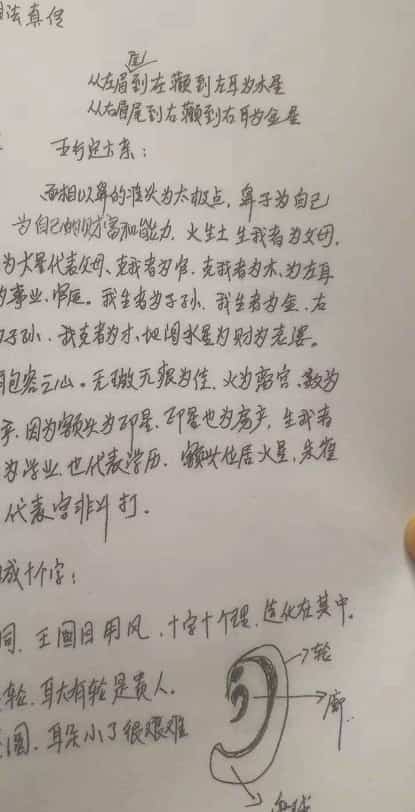 法真传
尾
从左眉到左颧到左耳为木星
从右眉尾到右颧到右耳为金星
五行定六亲：
面相以鼻的准头为太极点，鼻子为自己
为自己的财富和能力，火生土生我者为父母，
为火星代表父母、克我者为官，克我者为木、为左耳
为事业、官应。我生者为子孙，我生者为金、右
子孙，我克者为才、地阁水星为财为老婆。
包容三山。无璈无痕为佳，火为离宫、数为
因为额头为印星，印星也为房产，生我者
为学业，也代表学历，额头位居火星，朱雀
代表官非斗打。
成十个字：
同，王圆目用风，十字十个理，造化在其中。
轮，耳大有轮是贵人。
圆，耳朵小了很艰难
轮
廓